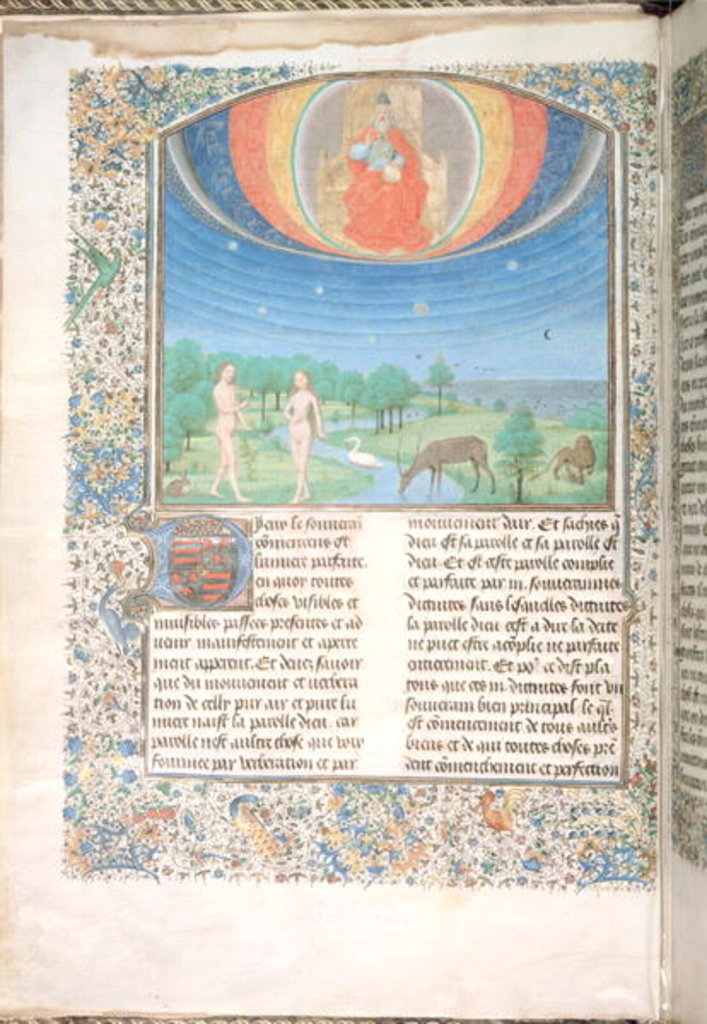 Dieu le souuerai
comencens et
lumiere parfaite.
en quoy toutes
choses visibles et
muisibles passees presentes et ad
uenir manifestement et aperte
ment apparent. Et deuez sauoir
que du mouuement et uerbera
tion de celly pur air et pure lu
miere naist la parolle dieu. car
parolle nest aultre chose que voix
fourmee par verberation et par
mouuement dair. Et sachies q̄
dieu est sa parolle et sa parolle est
dieu. Et est ceste parolle complie
et parfaite par souueraines
dignites sans lesquelles dignites
la parolle dieu cest a dire la deite
ne puet estre acōplie ne parfaite
entierement. Et po᷑ ce dist pla
tons que ces dignites sont vn
souuerain bien principal le q̄l
est cōmencement de tous aultˢ
biens et de qui toutes choses pre
dent cōmenchement et perfection